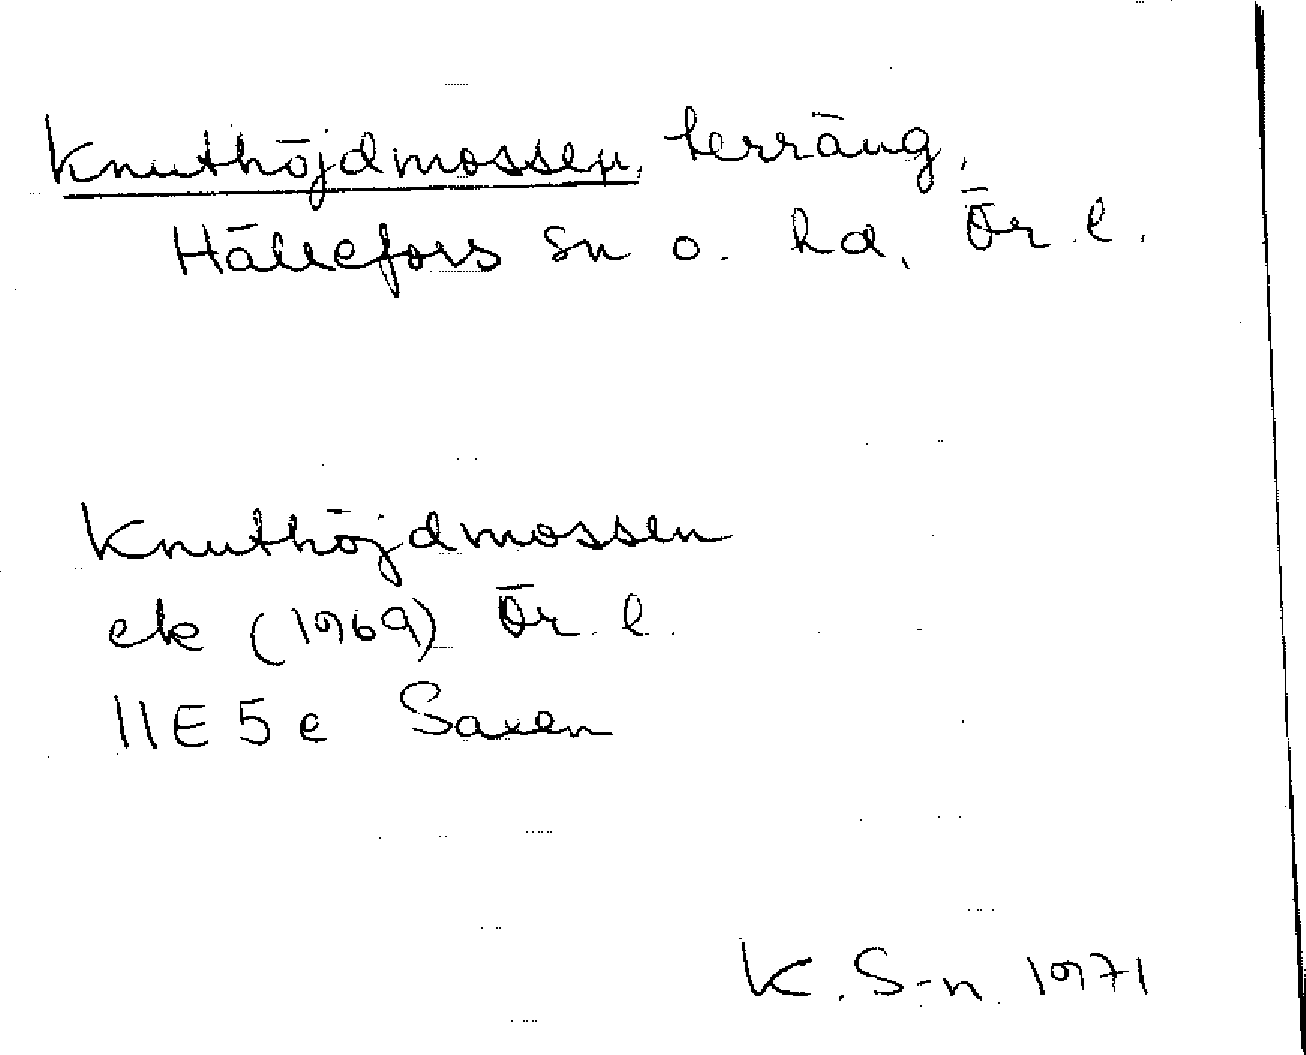 Knuthöjdmossen, terräng,
Hällefors sn o. hd, Ör. l.
Knuthöjdmossen
ek (1969) Ör. l.
11E 5e Saxen
K. S-n. 1971